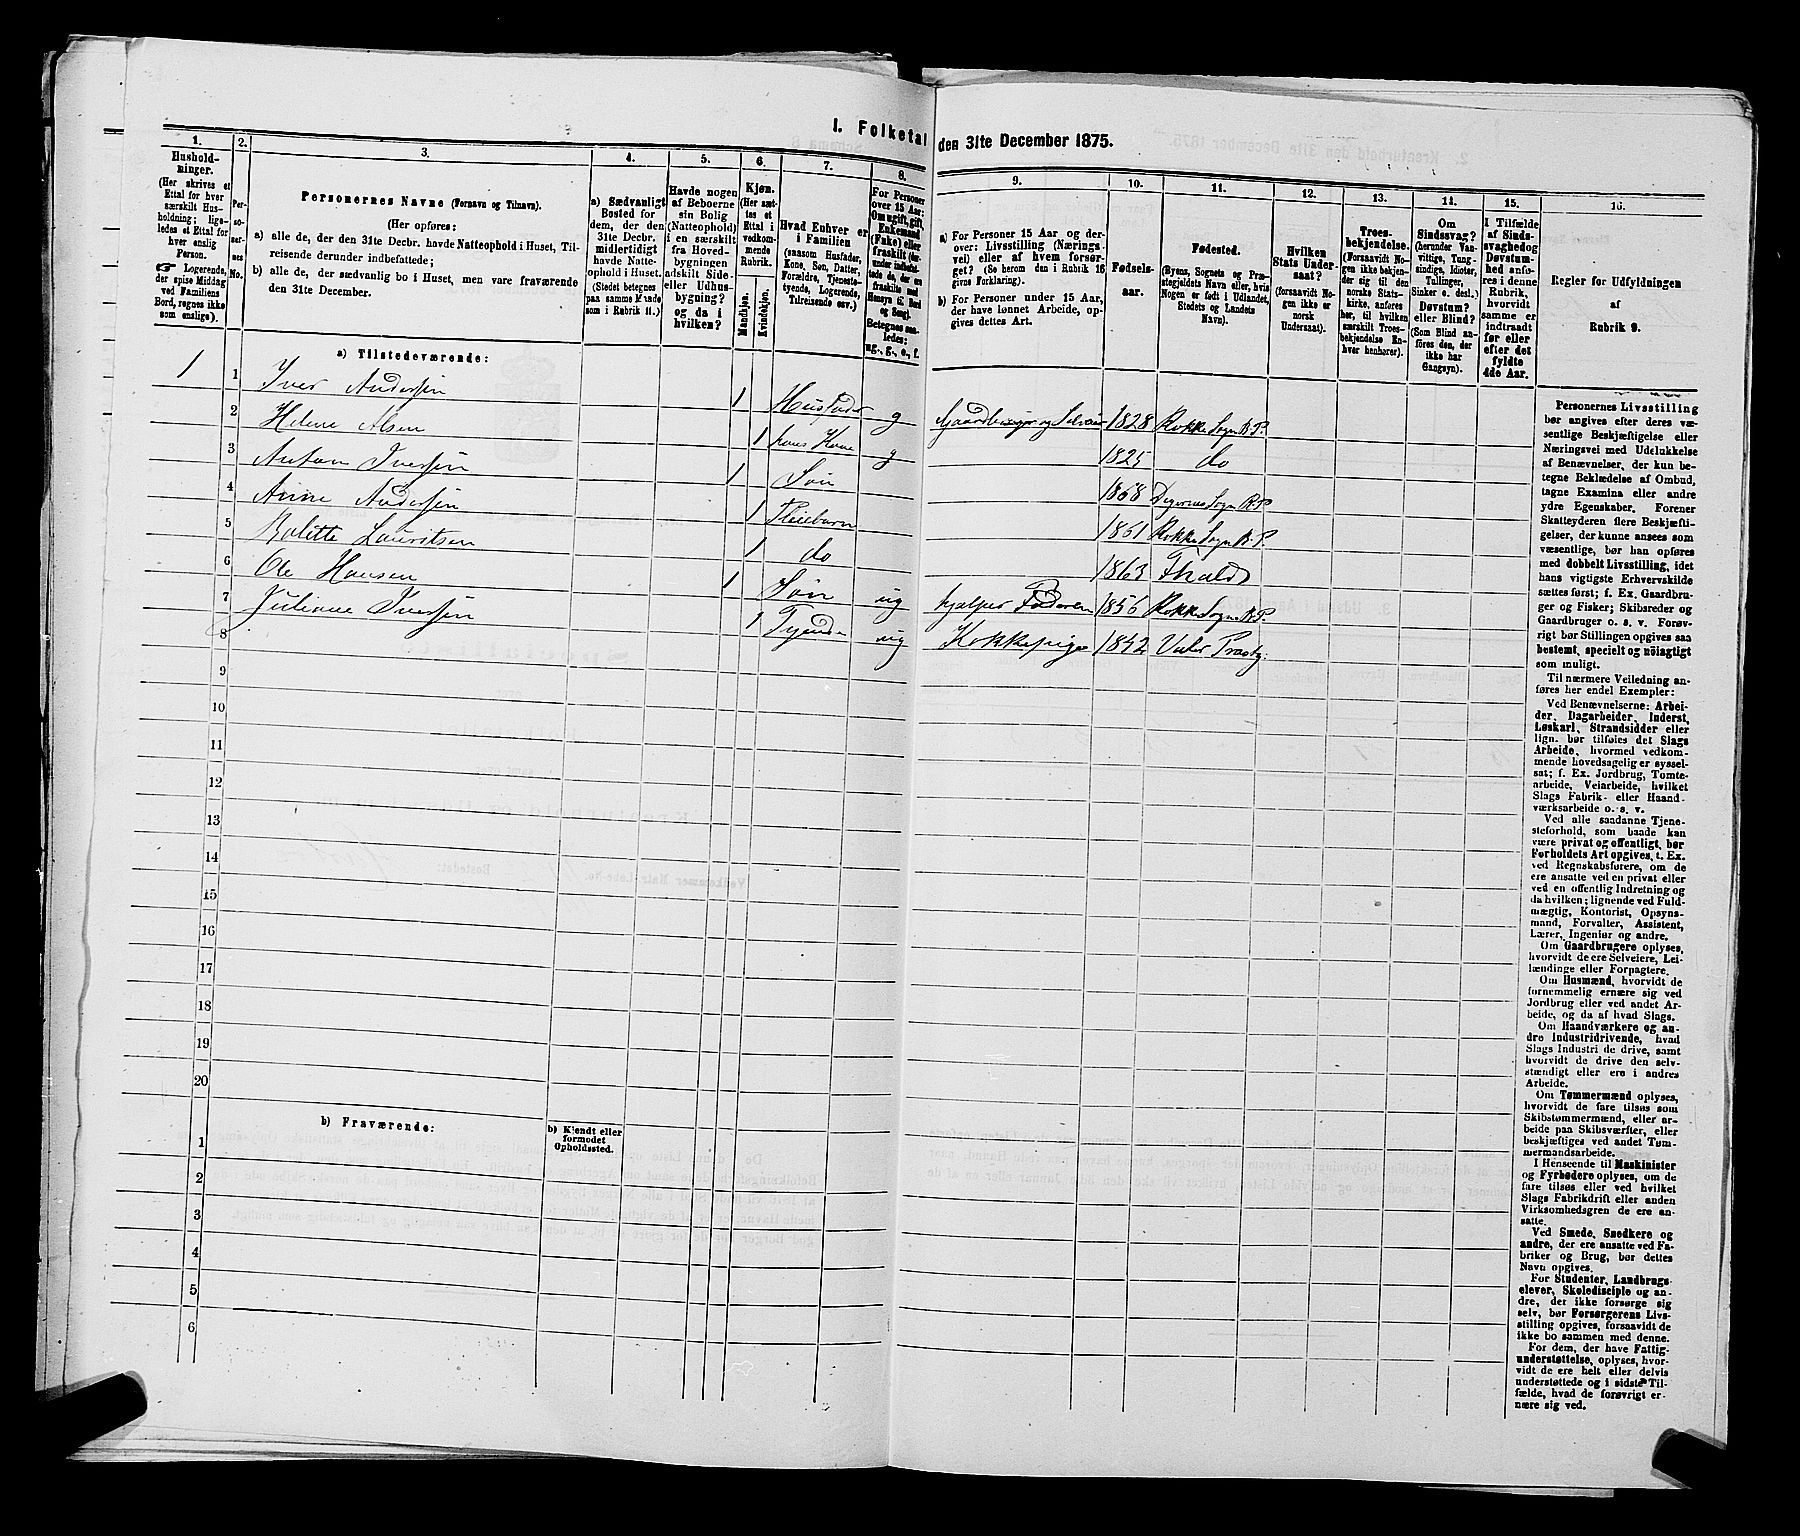 I. Folketal den 31te December 1875.
1.
Hushold-
ninger.
(Her skrives et
Ettal for hver
særskilt Hus-
holdning; lige-
ledes et Ettal for
hver enslig
Person.
☞ Logerende,
der spise Middag
ved Familiens
Bord, regnes ikke
som enslige).
2.
Per-
so-
ner-
nes
No.
3.
Personernes Navne (Fornavn og Tilnavn).
(Her opføres:
a) alle de, der den 31te Decbr. havde Natteophold i Huset, Til-
reisende derunder indbefattede;
b) alle de, der sædvanlig bo i Huset, men vare fraværende
den 31te December.
4.
a) Sædvanligt
Bosted for
dem, der den
31te Decbr.
midlertidigt
havde Natte-
ophold i Huset.
(Stedet betegnes
paa samme Maade
som i Rubrik 11.)
5.
Havde nogen
af Beboerne
sin Bolig
(Natteophold)
i en særskilt
fra Hoved-
bygningen
adskilt Side-
eller Udhus-
bygning?
og da i
hvilken?
6.
Kjøn.
(Her sæt-
tes et
Ettal i
vedkom-
mende
Rubrik.
Mandkjøn.
Kvindekjøn.
7.
Hvad Enhver er
i Familien
(saasom Husfader,
Kone, Søn, Datter,
Forældre, Tjeneste-
tyende, Logerende,
Tilreisende osv.)
8.
For Personer
over 15 Aar:
Om ugift, gift,
Enkemand
(Enke) eller
fraskilt
Betegnes saa-
ledes:
ug., g., e., f.
9.
a) For Personer 15 Aar og der-
over: Livsstilling (Nærings-
vei) eller af hvem forsør-
get? (Se herom den i Rubrik 16
givne Forklaring).
b) For Personer under 15 Aar,
der have lønnet Arbeide, op-
gives dettes Art.
10.
Fødsels-
aar.
11.
Fødested.
(Byens, Sognets og Præ-
stegjeldets Navn eller, hvis
Nogen er født i Udlandet,
Stedets og Landets
Navn).
12.
Hvilken
Stats Under-
saat?
(forsaavidt No-
gen ikke er
norsk
Undersaat).
13.
Troes-
bekjendelse.
(Forsaavidt No-
gen ikke bekjen-
der sig til den
norske Stats-
kirke, anføres
her, til hvilken
særskilt Troes-
bekjendelse En-
hver henhører).
14.
Om
Sindssvag?
(herunder Van-
vittige, Tung-
sindige, Idioter,
Tullinger,
Sinker o. desl.)
Døvstum?
eller Blind?
(Som Blind an-
føres den, der
ikke har
Gangsyn).
15.
I Tilfælde
af Sinds-
svaghed og
Døvstum-
hed anfø-
res i denne
Rubrik,
hvorvidt
samme er
indtraadt
før eller
efter det
fyldte
4de Aar.
16.
Regler for Udfyldningen
af
Rubrik 9.
a) Tilstedeværende:
1 1 Iver Andersen 1 Husfader g Gaardbruger og Selveier 1828 Rokke Sogn B. P.
2 Helene Olsen 1 hans Kone g 1825 do
3 Anton Iversen 1 Søn 1868 Degernes Sogn R. P.
4 Anne Andersen 1 Pleiebarn 1861 Rokke Sogn B. P.
5 Bolette Lauritsen 1 do 1863 Fhald
6 Ole Hansen 1 Søn ug hjelper Faderen 1856 Rokke Sogn B. P.
7 Juliane Iversen 1 Tyende ug Kokkepige 1842 Valer Præstg:
8
9
10
11
12
13
14
15
16
17
18
19
20
b) Fraværende:
b) Kjendt eller
formodet
Opholdssted.
1
2
3
4
5
6
Personernes Livsstilling
bør angives efter deres væ-
sentlige Beskjæftigelse eller
Næringsvei med Udelukkelse
af Benævnelser, der kun be-
tegne Beklædelse af Ombud,
tagne Examina eller andre
ydre Egenskaber. Forener
Skatteyderen flere Beskjæfti-
gelser, der kunne ansees som
væsentlige, bør han opføres
med dobbelt Livsstilling, idet
hans vigtigste Erhvervskilde
sættes først; f. Ex. Gaardbru-
ger og Fisker; Skibsreder og
Gaardbruger o. s. v. Forøv-
rigt bør Stillingen opgives saa
bestemt, specielt og nöiagtigt
som muligt.
Til nærmere Veiledning an-
føres her endel Exempler:
Ved Benævnelserne: Arbei-
der, Dagarbeider, Inderst,
Løskarl, Strandsidder eller
lign. bør tilføies det Slags
Arbeide, hvormed vedkom-
mende hovedsagelig er syssel-
sat; f. Ex. Jordbrug, Tomte-
arbeide, Veiarbeide, hvilket
Slags Fabrik- eller Haand-
værksarbeide o. s. v.
Ved alle saadanne Tjene-
steforhold, som baade kan
være privat og offentligt, bør
Forholdets Art opgives, t. Ex.
ved Regnskabsførere, om de
ere ansatte ved en privat eller
ved en offentlig Indretning og
da hvilken; lignende ved Fuld-
mægtig, Kontorist, Opsyns-
mand, Forvalter, Assistent,
Lærer, Ingeniør og andre.
Om Gaardbrugere oplyses,
hvorvidt de ere Selveiere, Lei-
lændinge eller Forpagtere.
Om Husmænd, hvorvidt de
fornemmelig ernære sig ved
Jordbrug eller ved andet Ar-
beide, og da af hvad Slags.
Om Haandværkere og an-
dre Industridrivende, hvad
Slags Industri de drive, samt
hvorvidt de drive den selv-
stændigt eller ere i andres
Arbeide.
Om Tømmermænd oplyses,
hvorvidt de fare tilsøs som
Skibstømmermænd, eller ar-
beide paa Skibsværfter, eller
beskjæftiges ved andet Tøm-
mermandsarbeide.
I Henseende til Maskinister
og Fyrbødere oplyses, om de
fare tilsøs eller ved hvilket
Slags Fabrikdrift eller anden
Virksomhedsgren de ere an-
satte.
Ved Smede, Snedkere og
andre, der ere ansatte ved Fa-
briker og Brug, bør dettes
Navn opgives.
For Studenter, Landbrugs-
elever, Skoledisciple og an-
dre, der ikke forsørge sig
selv, bør Forsørgerens Livs-
stilling opgives, forsaavidt de
ikke bo sammen med denne.
For dem, der have Fattig-
understøttelse, oplyses, hvor-
vidt de ere helt eller delvis
understøttede og i sidste Til-
fælde, hvad de forøvrigt er-
nære sig ved.